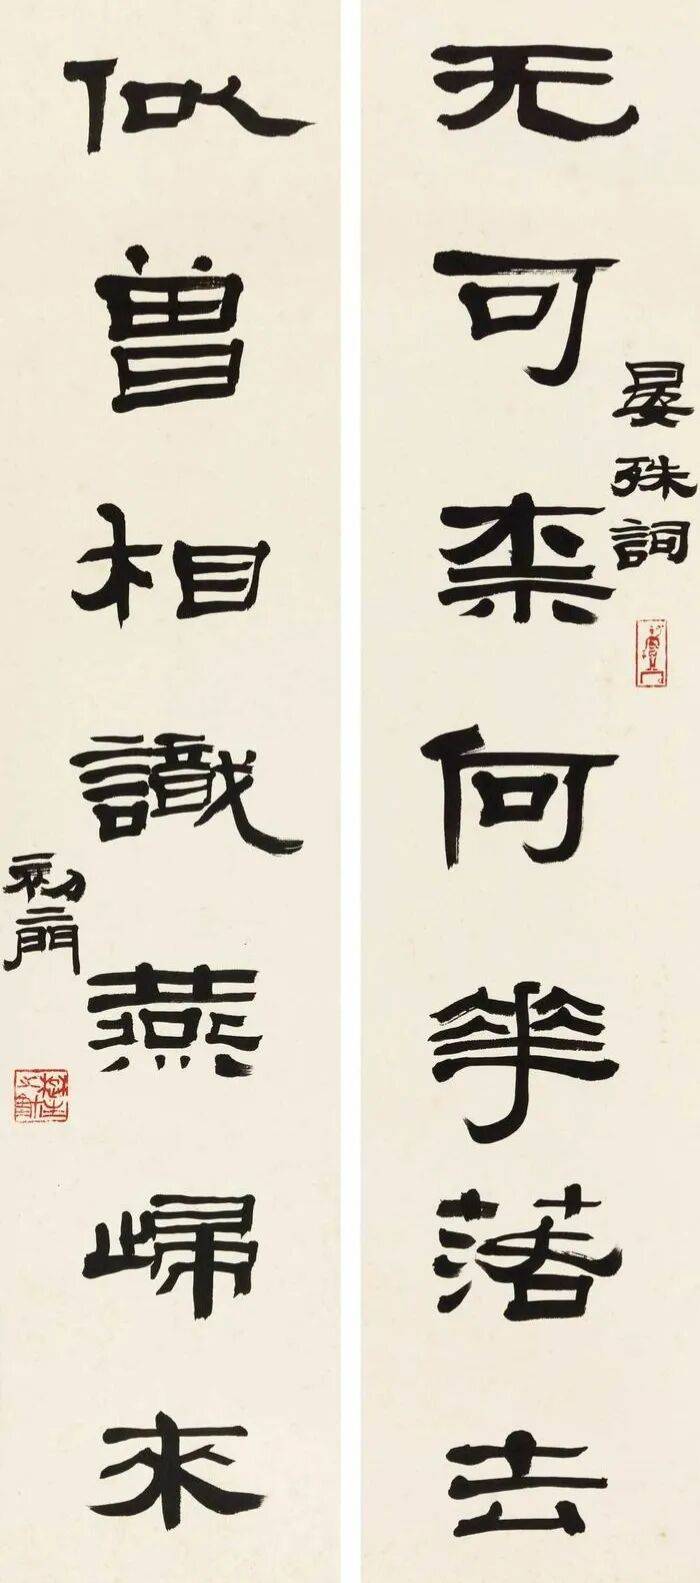 无可柰何华落去
晏殊詞
似曾相識燕歸來
初門